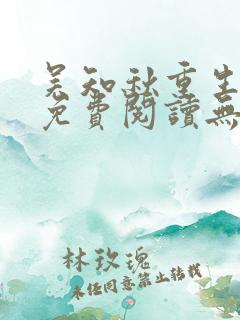 吴知秋重生
免費閱讀無
林玫瑰
未經同意禁止轉載